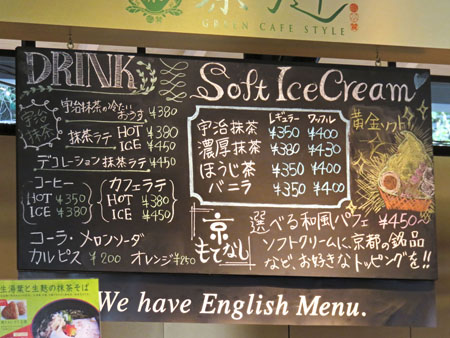 GREEN CAFE STYLE
DRINK
宇治抹茶
宇治抹茶の冷たいおうす ¥380
抹茶ラテ HOT ¥380
ICE ¥450
デコレーション抹茶ラテ ¥450
コーヒー
HOT ¥350
ICE ¥380
カフェラテ
HOT ¥380
ICE ¥450
コーラ・メロンソーダ
カルピス ¥200 オレンジ ¥250
Soft IceCream
レギュラー ワッフル
宇治抹茶 ¥350 ¥400
濃厚抹茶 ¥380 ¥430
ほうじ茶 ¥350 ¥400
バニラ ¥350 ¥400
黄金ソフト
京もてなし
選べる和風パフェ ¥450
ソフトクリームに、京都の銘品
など、お好きなトッピングを!!
We have English Menu.
生湯葉と生麩の抹茶そば